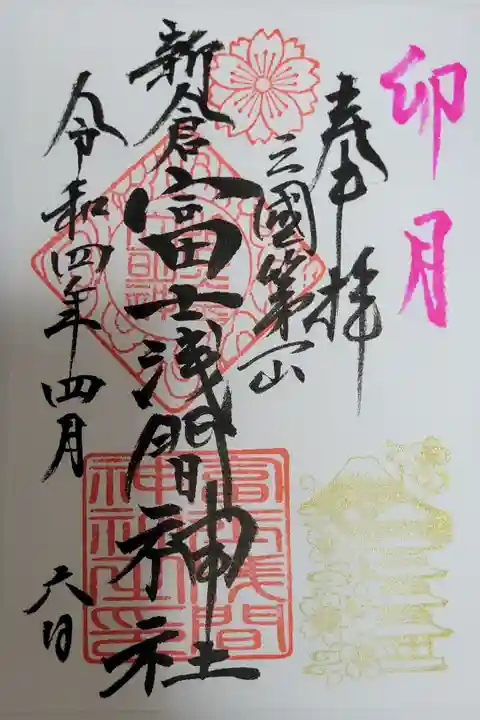 卯月
奉拝
三國第一山
新倉
富士浅間神社
令和四年四月
六日